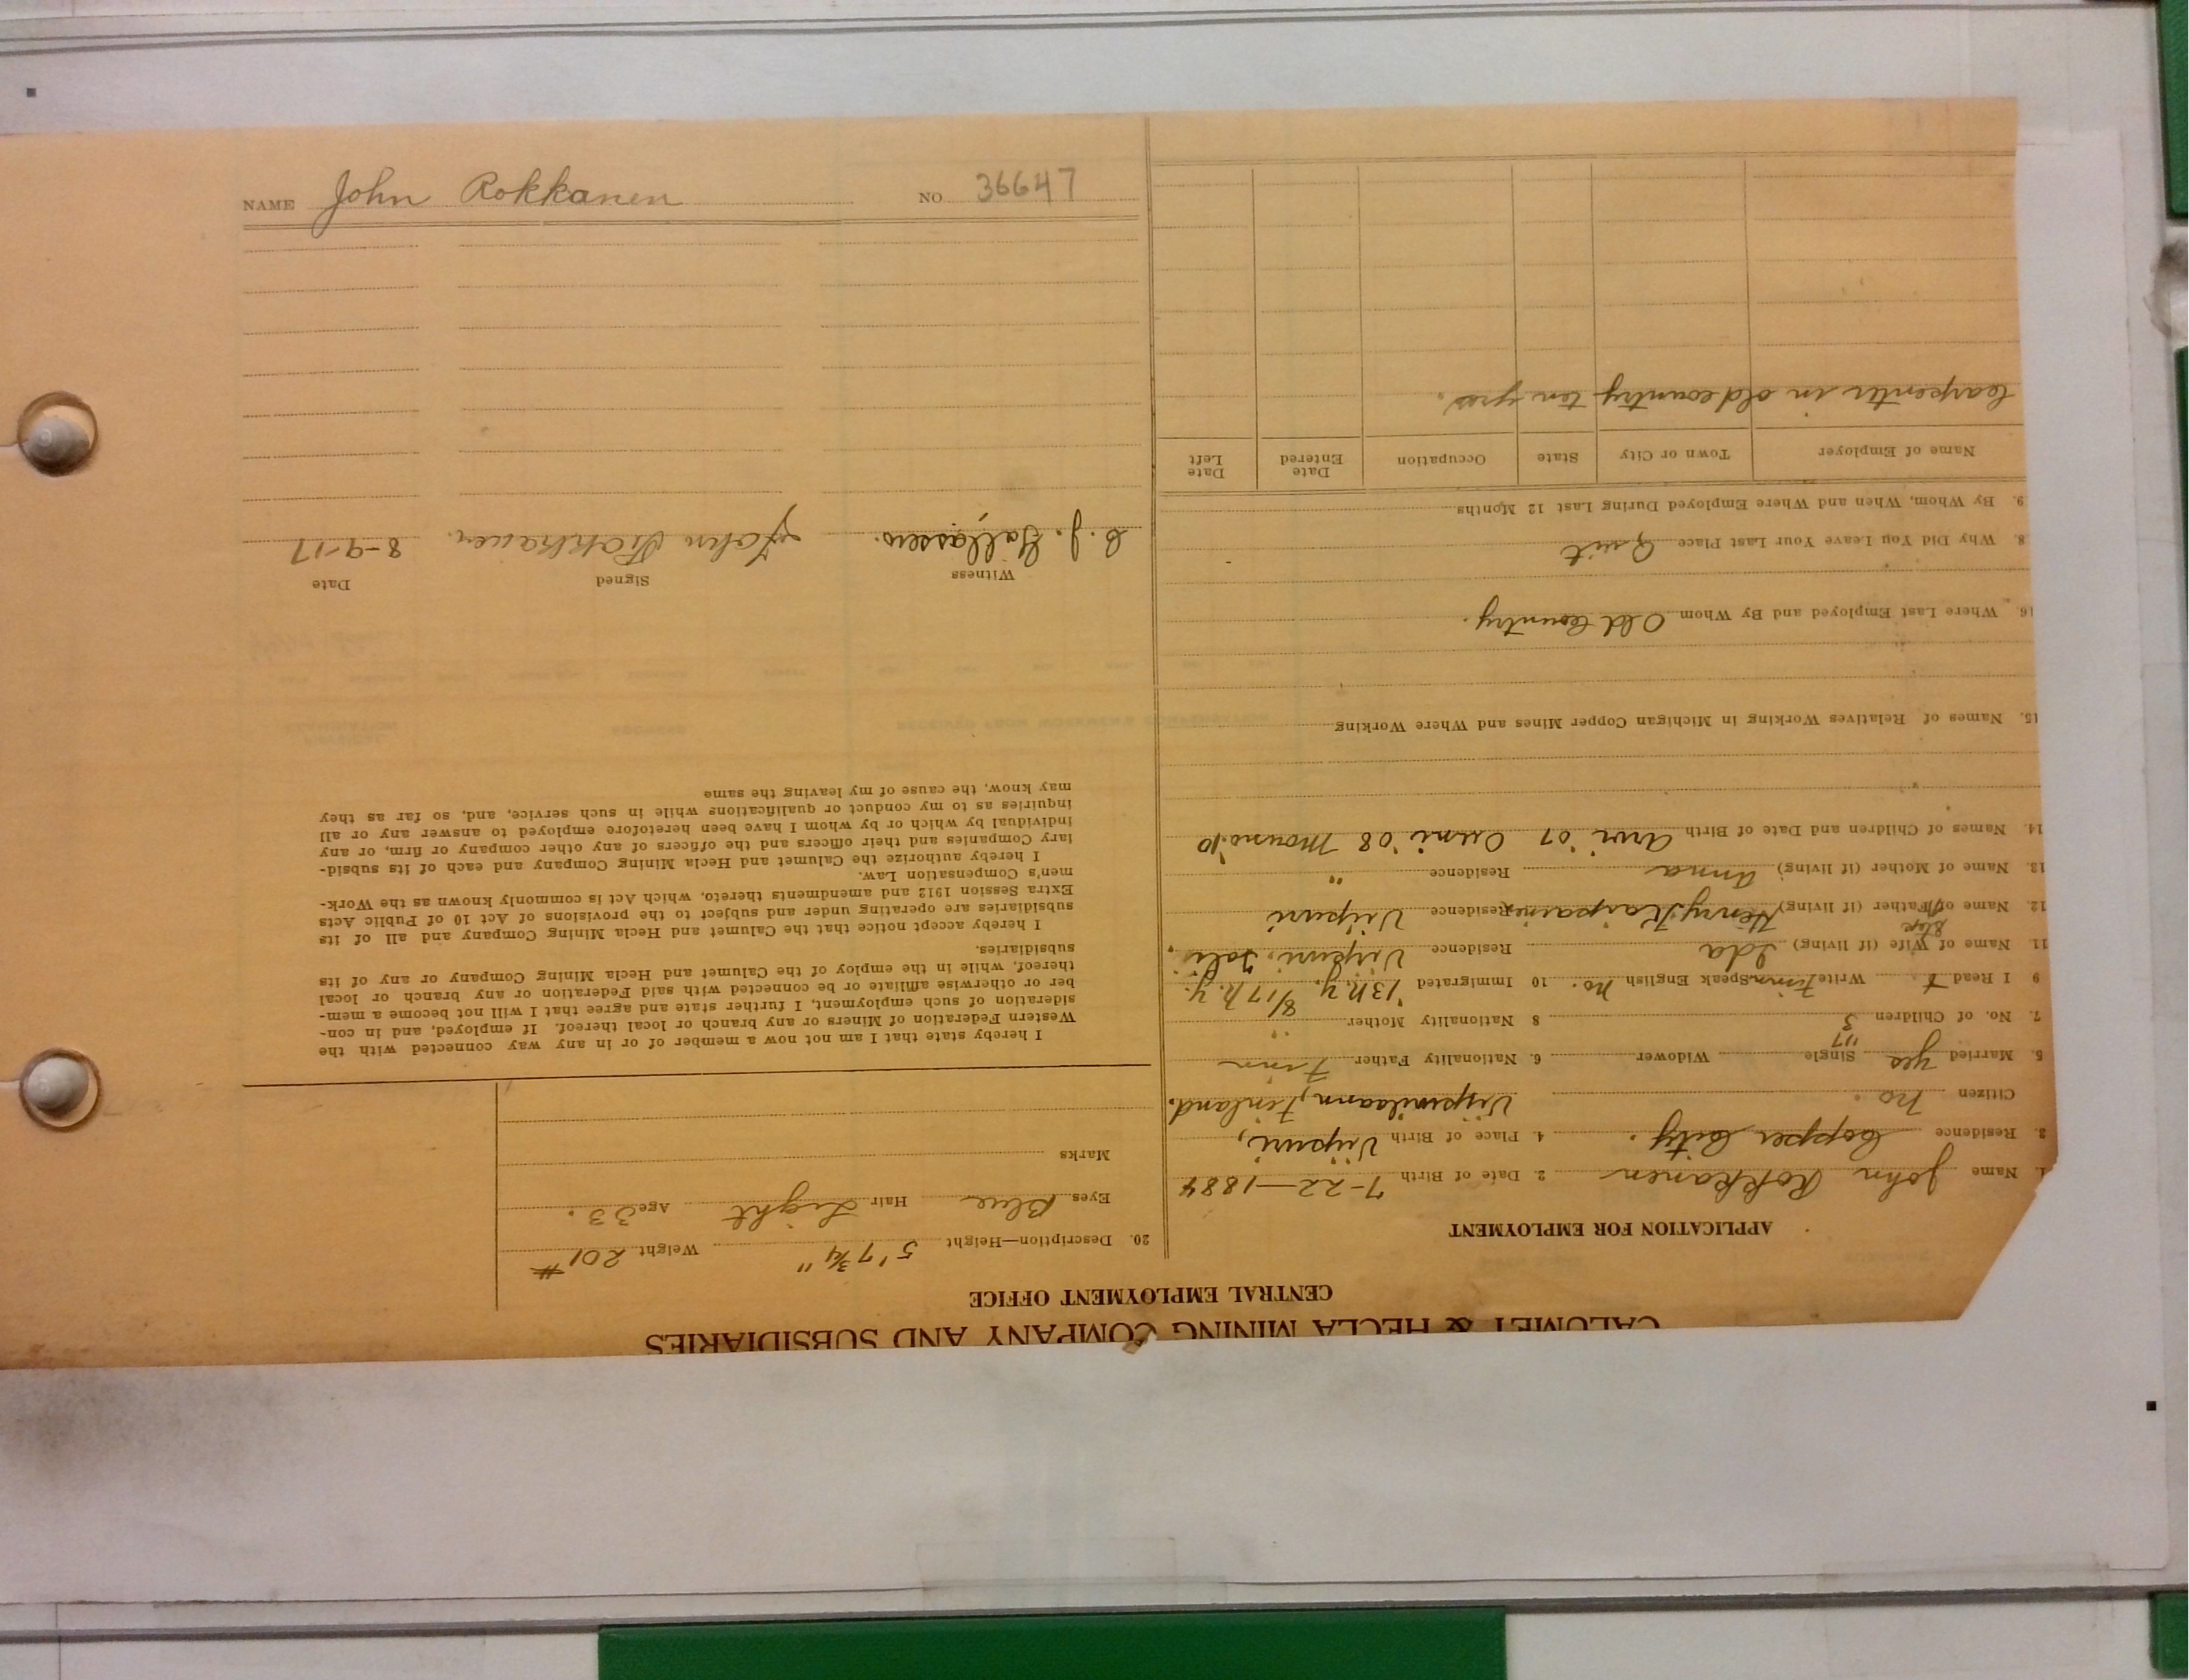 CALUMET & HECLA MINING COMPANY AND SUBSIDIARIES
CENTRAL EMPLOYMENT OFFICE
APPLICATION FOR EMPLOYMENT
1. Name John Rokkanen 2. Date of Birth 7-22-1884
3. Residence Copper City. 4. Place of Birth Viipuri,
Citizen no. Finland.
5. Married yes Single Widower 6. Nationality Father Finn
"17
7. No. of Children 3 8 Nationality Mother "
8/17 N.Y.
9 I Read & Write Finn Speak English no. 10 Immigrated '13 N.Y.
11. Name of Wife (if living) Ida Residence Viipuri,
Step
12. Name of Father (if living) Henry Residence Viipuri
13. Name of Mother (if living) Anna Residence "
14. Names of Children and Date of Birth Arvi '07 '08 '10
15. Names of Relatives Working in Michigan Copper Mines and Where Working
16. Where Last Employed and By Whom Old Country.
8. Why Did You Leave Your Last Place Quit
9. By Whom, When and Where Employed During Last 12 Months
Name of Employer Town or City State Occupation Date Entered Date Left
Carpenter in old country ten yrs.
20. Description—Height 5' 7 3/4" Weight 201 #
Eyes Blue Hair Light Age 33.
Marks
I hereby state that I am not now a member of or in any way connected with the
Western Federation of Miners or any branch or local thereof. If employed, and in con-
sideration of such employment, I further state and agree that I will not become a mem-
ber or otherwise affiliate or be connected with said Federation or any branch or local
thereof, while in the employ of the Calumet and Hecla Mining Company or any of its
subsidiaries.
I hereby accept notice that the Calumet and Hecla Mining Company and all of its
subsidiaries are operating under and subject to the provisions of Act 10 of Public Acts
Extra Session 1912 and amendments thereto, which Act is commonly known as the Work-
men's Compensation Law.
I hereby authorize the Calumet and Hecla Mining Company and each of its subsid-
iary Companies and their officers and the officers of any other company or firm, or any
individual by which or by whom I have been heretofore employed to answer any or all
inquiries as to my conduct or qualifications while in such service, and, so far as they
may know, the cause of my leaving the same
Witness Signed Date
C. J. John Rokkanen. 8-9-17
NAME John Rokkanen NO. 36647